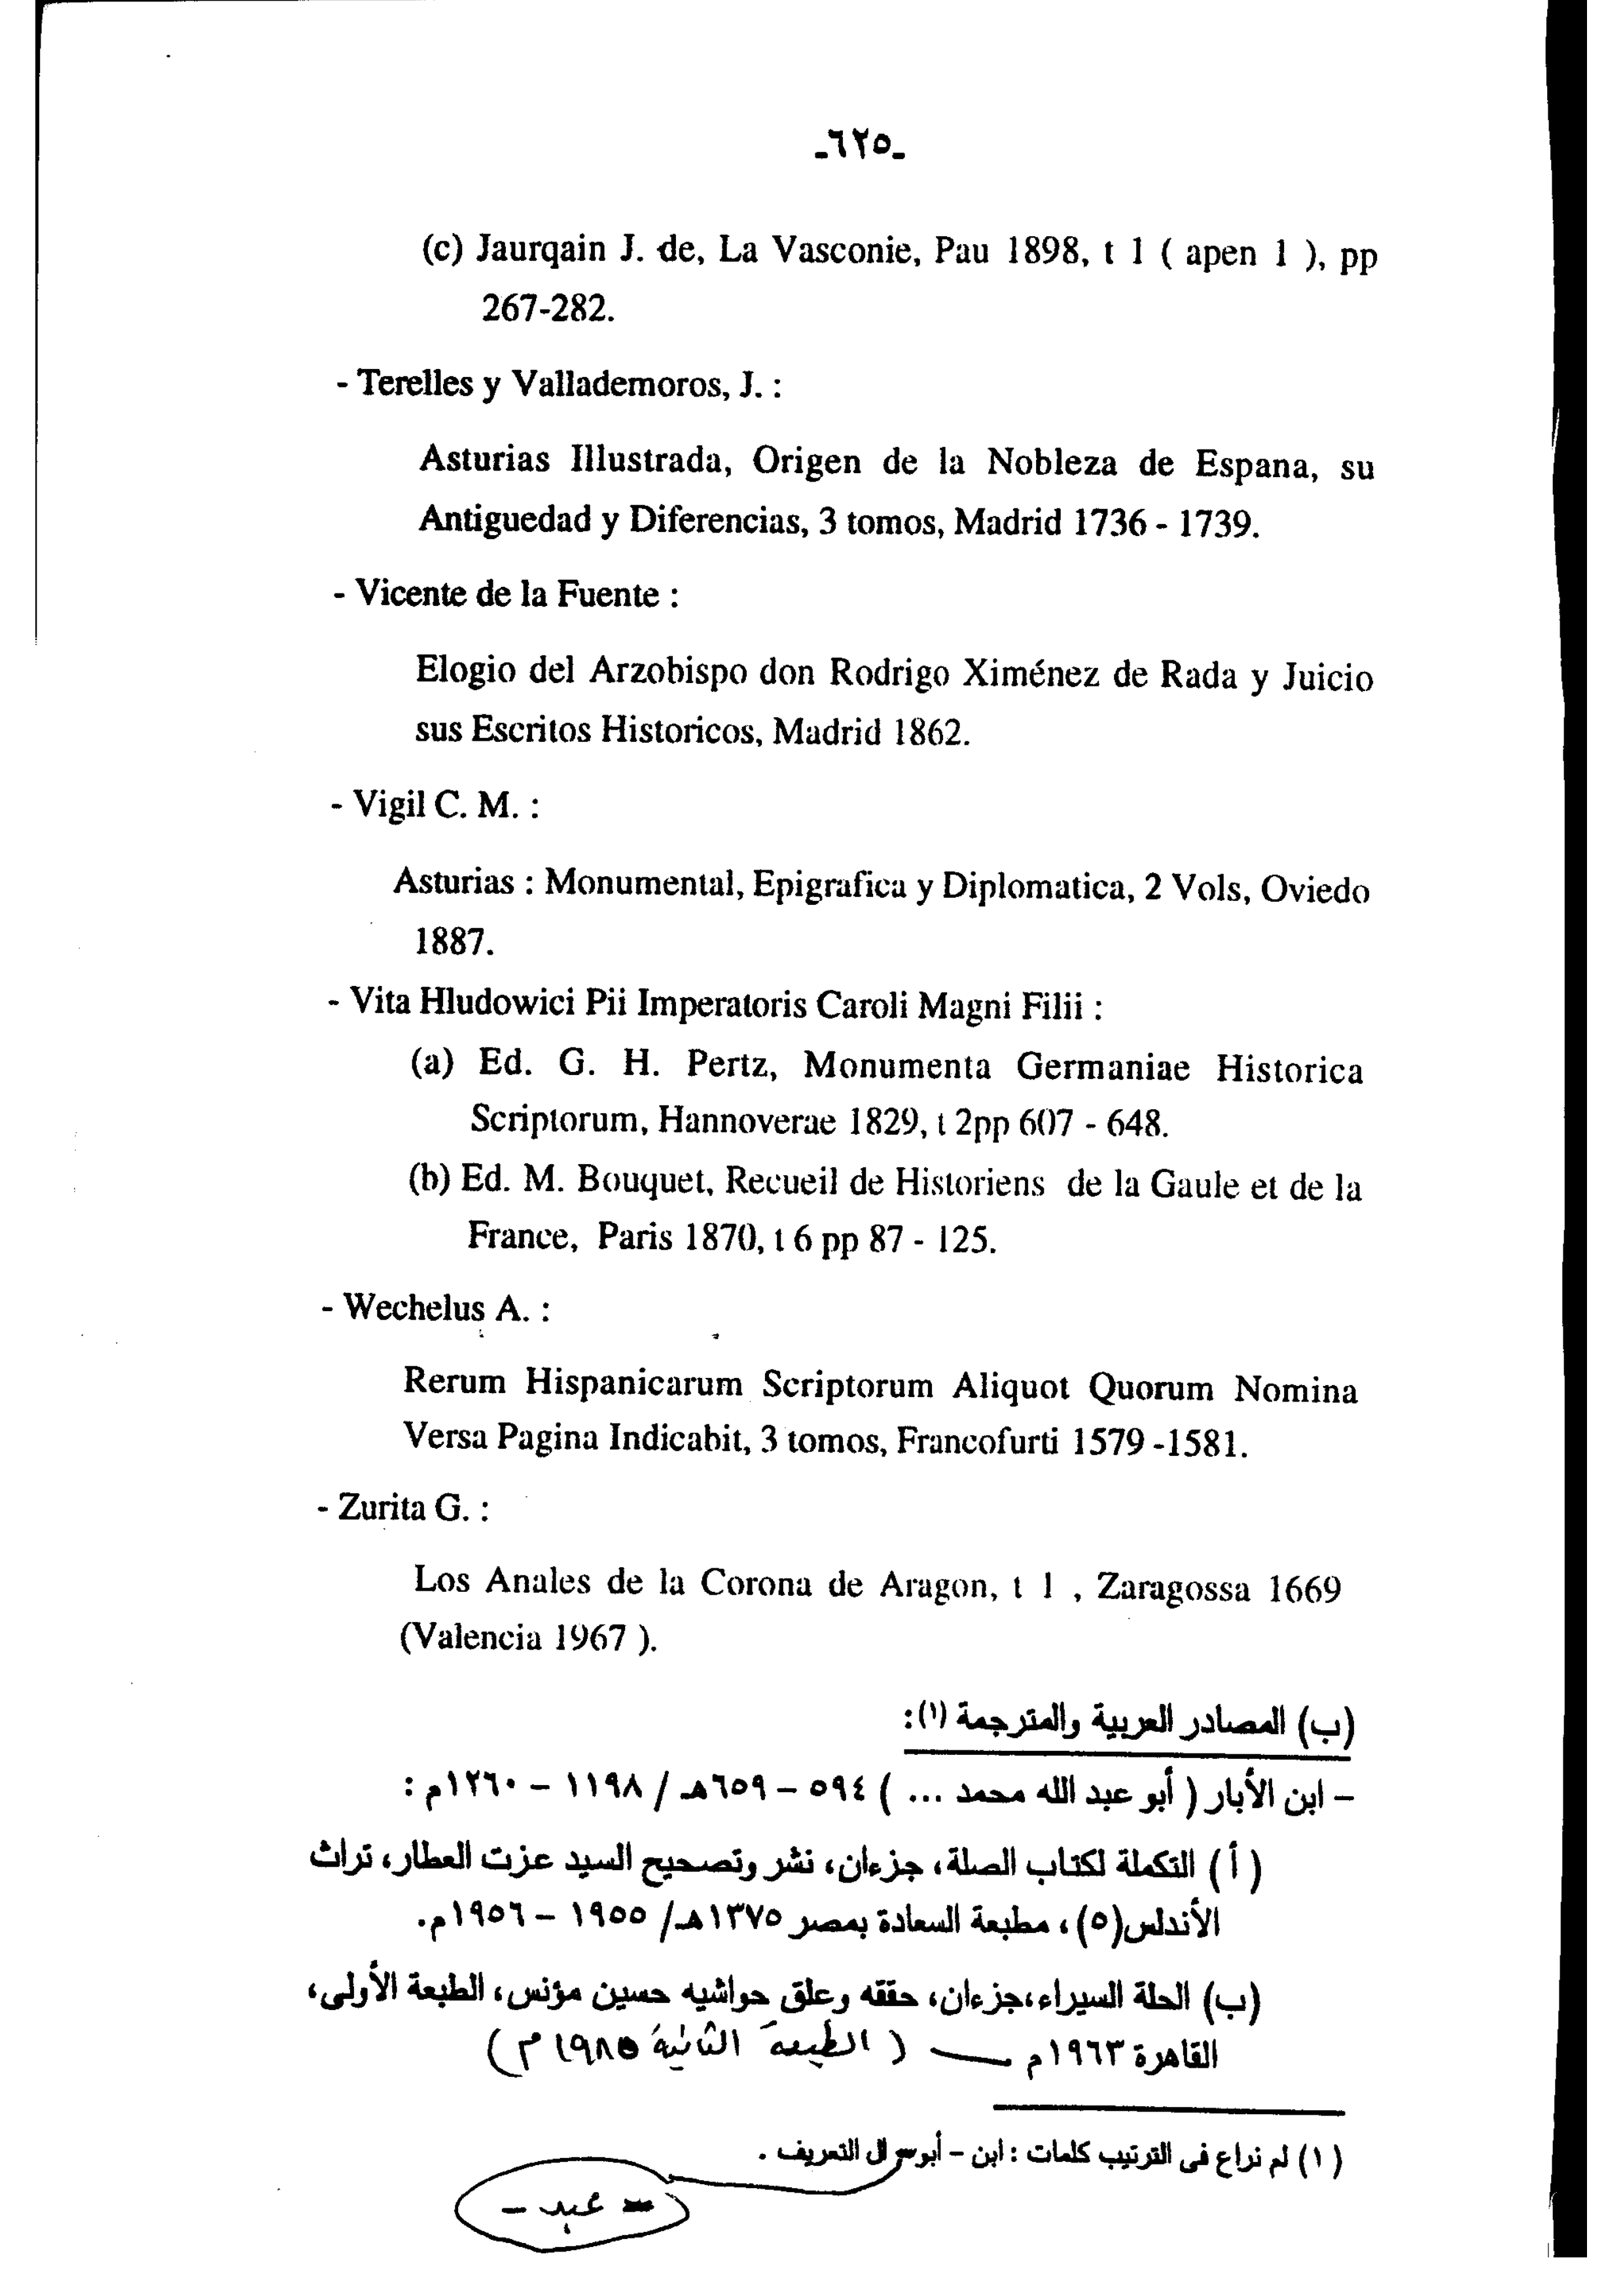 -٦٢٥-
(c) Jaurqain J. de, La Vasconie, Pau 1898, t 1 ( apen 1 ), pp
267-282.
- Terelles y Vallademoros, J. :
Asturias Illustrada, Origen de la Nobleza de Espana, su
Antiguedad y Diferencias, 3 tomos, Madrid 1736 - 1739.
- Vicente de la Fuente :
Elogio del Arzobispo don Rodrigo Ximénez de Rada y Juicio
sus Escritos Historicos, Madrid 1862.
- Vigil C. M. :
Asturias : Monumental, Epigrafica y Diplomatica, 2 Vols, Oviedo
1887.
- Vita Hludowici Pii Imperatoris Caroli Magni Filii :
(a) Ed. G. H. Pertz, Monumenta Germaniae Historica
Scriptorum, Hannoverae 1829, t 2pp 607 - 648.
(b) Ed. M. Bouquet, Recueil de Historiens de la Gaule et de la
France, Paris 1870, t 6 pp 87 - 125.
- Wechelus A. :
Rerum Hispanicarum Scriptorum Aliquot Quorum Nomina
Versa Pagina Indicabit, 3 tomos, Francofurti 1579 -1581.
- Zurita G. :
Los Anales de la Corona de Aragon, t 1 , Zaragossa 1669
(Valencia 1967 ).
(ب) المصادر العربية والمترجمة (١):
– ابن الأبار ( أبو عبد الله محمد ... ) ٥٩٤ – ٦٥٩هـ / ١١٩٨ – ١٢٦٠م :
( أ ) التكملة لكتاب الصلة، جزءان، نشر وتصحيح السيد عزت العطار، تراث
الأندلس(٥)، مطبعة السعادة بمصر ١٣٧٥هـ/ ١٩٥٥ – ١٩٥٦م.
(ب) الحلة السيراء،جزءان، حققه وعلق حواشيه حسين مؤنس، الطبعة الأولى،
القاهرة ١٩٦٣م — ( الطبعة الثانية ١٩٨٥ م )
( ١ ) لم نراع فى الترتيب كلمات : ابن – أبو – ال التعريف .
– عبد –